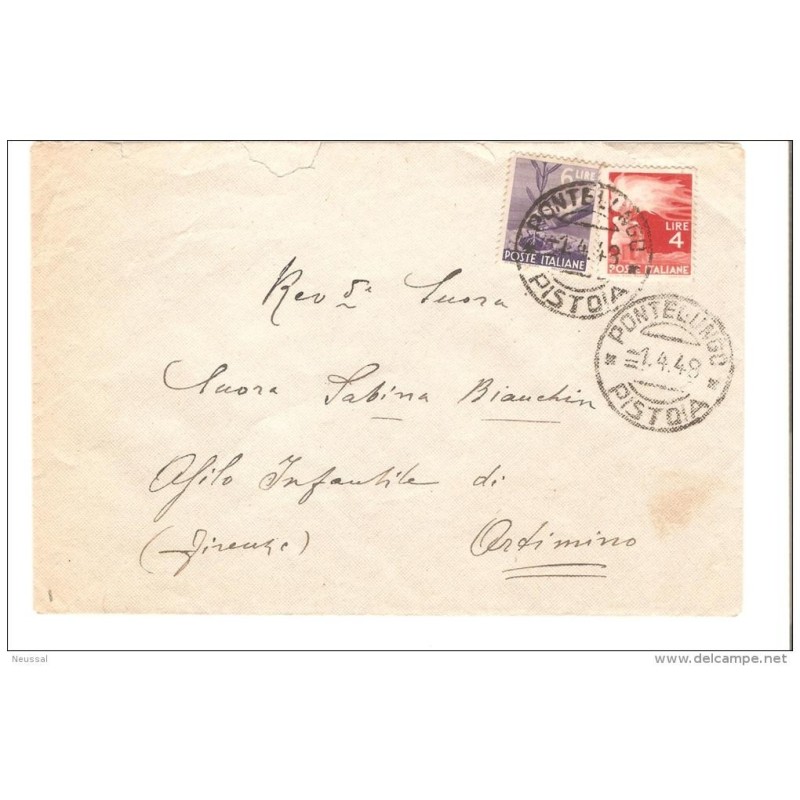 6 LIRE
POSTE ITALIANE
LIRE
4
POSTE ITALIANE
PONTELUNGO
1.4.48
PISTOIA
PONTELUNGO
1.4.48
PISTOIA
Rev da Suora
Suora Sabina Bianchin
Asilo Infantile di
(Firenze) Artimino
Neussal
www.delcampe.net